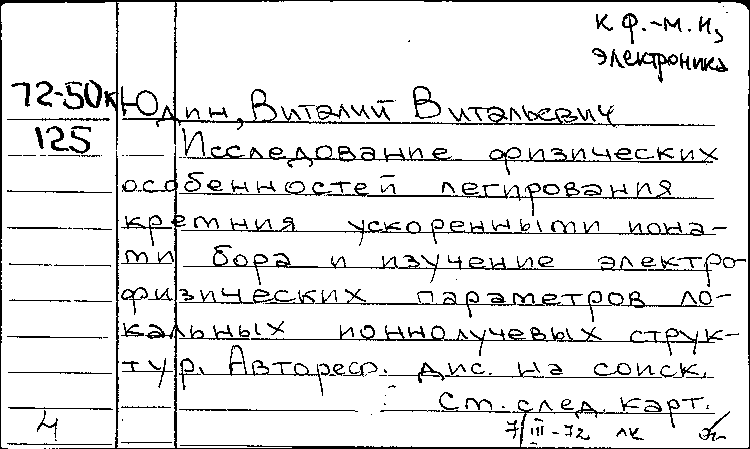 к ф.-м. н,
электроника
72-50к Юдин, Виталий Витальевич
125 Исследование физических
особенностей легирования
кремния ускоренными иона-
ми бора и изучение электро-
физических параметров ло-
кальных ионнолучевых струк-
тур. Автореф. дис. на соиск.
См. след. карт.
4 7/III-72 ЛК